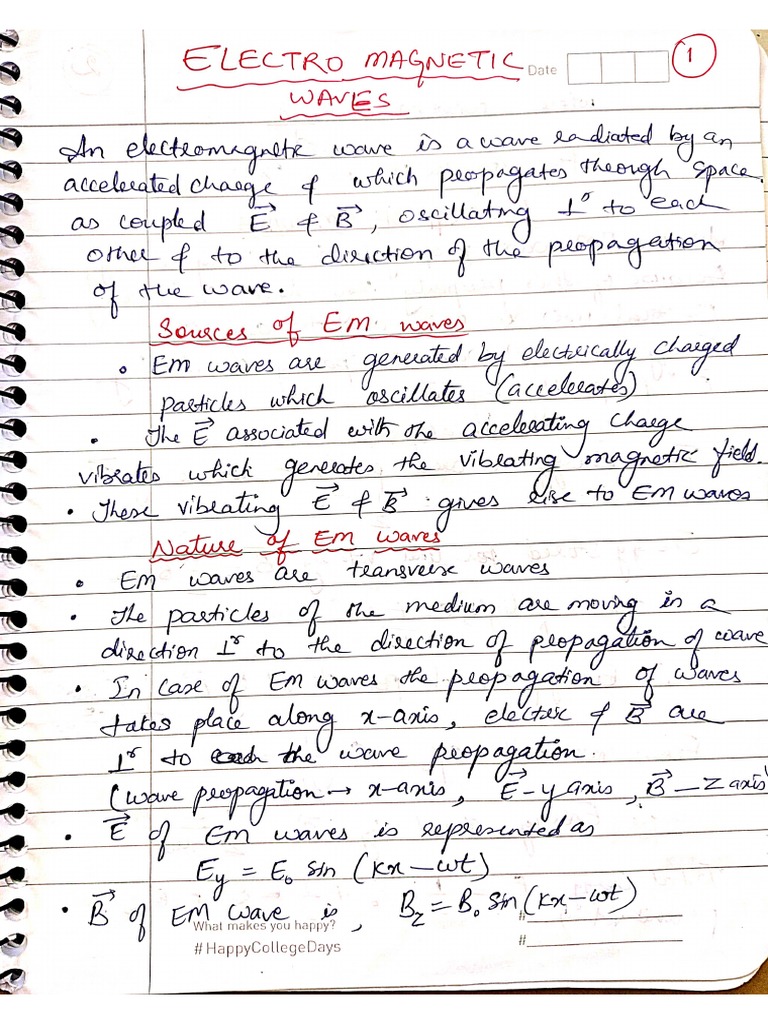 ELECTRO MAGNETIC Date 1
WAVES
An electromagnetic wave is a wave radiated by an
accelerated charge & which propagates through space
as coupled E⃗ & B⃗, oscillating ⊥ʳ to each
other & to the direction of the propagation
of the wave.
Sources of EM waves
• EM waves are generated by electrically charged
particles which oscillates (accelerates)
• The E⃗ associated with the accelerating charge
vibrates which generates the vibrating magnetic field.
• These vibrating E⃗ & B⃗ gives rise to EM waves
Nature of EM waves
• EM waves are transverse waves
• The particles of the medium are moving in a
direction ⊥ʳ to the direction of propagation of wave
• In case of EM waves the propagation of waves
takes place along x-axis, electric & B⃗ are
⊥ʳ to the wave propagation.
(wave propagation → x-axis, E⃗ - y axis, B⃗ - Z axis)
• E⃗ of EM waves is represented as
E_y = E₀ sin (kx - ωt)
• B⃗ of EM wave is, B_z = B₀ sin (kx - ωt)
What makes you happy? #
#HappyCollegeDays #